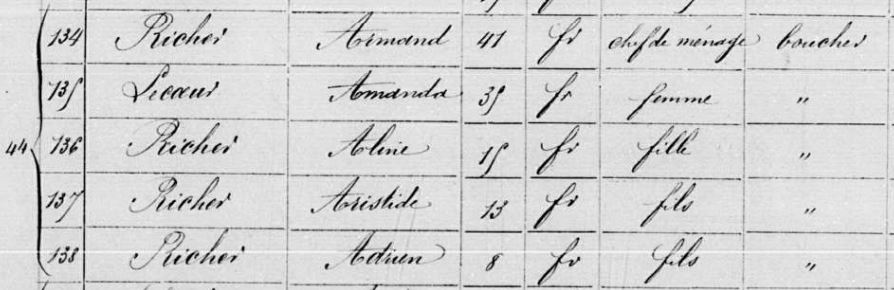 134 Richer Armand 41 fr chef de ménage boucher
135 Lecœur Amanda 35 fr femme "
44 136 Richer Aline 15 fr fille "
137 Richer Aristide 13 fr fils "
138 Richer Adrien 8 fr fils "